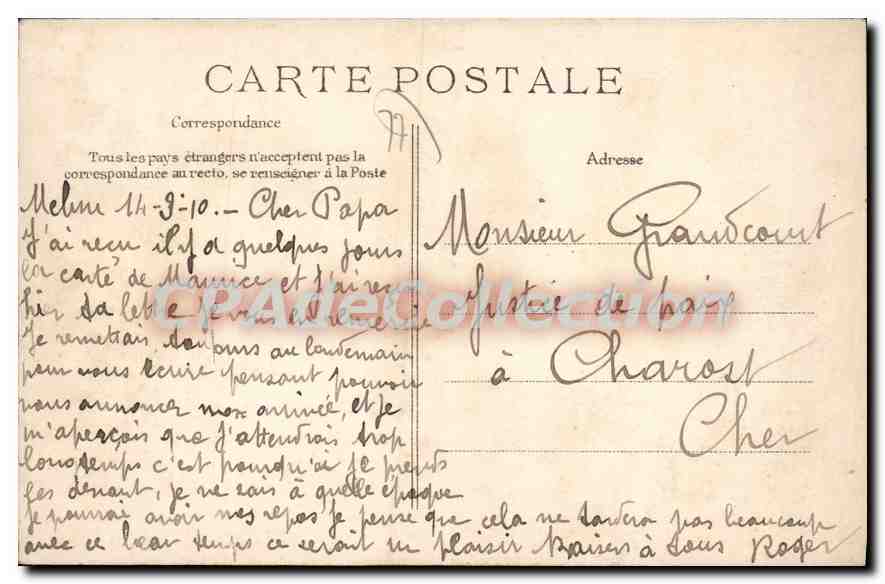 CARTE POSTALE
77
Correspondance
Tous les pays étrangers n'acceptent pas la
correspondance au recto, se renseigner à la Poste
Adresse
Melun 14-3-10.- Cher Papa
J'ai reçu il y a quelques jours
la carte de Maurice et j'ai reçu
hier ta lettre je vous en remercie
Je remettais toujours au lendemain
pour vous écrire pensant pouvoir
vous annoncer mon arrivée, et je
m'aperçois que j'attendrais trop
longtemps c'est pourquoi je prends
les devant, je ne sais à quelle époque
je pourrai avoir mes repos je pense que cela ne tardera pas beaucoup
avec ce beau temps ce serait un plaisir Baisers à tous Roger
Monsieur Grandcourt
Justice de paix
à Charost
Cher
CPAdeCollection.com